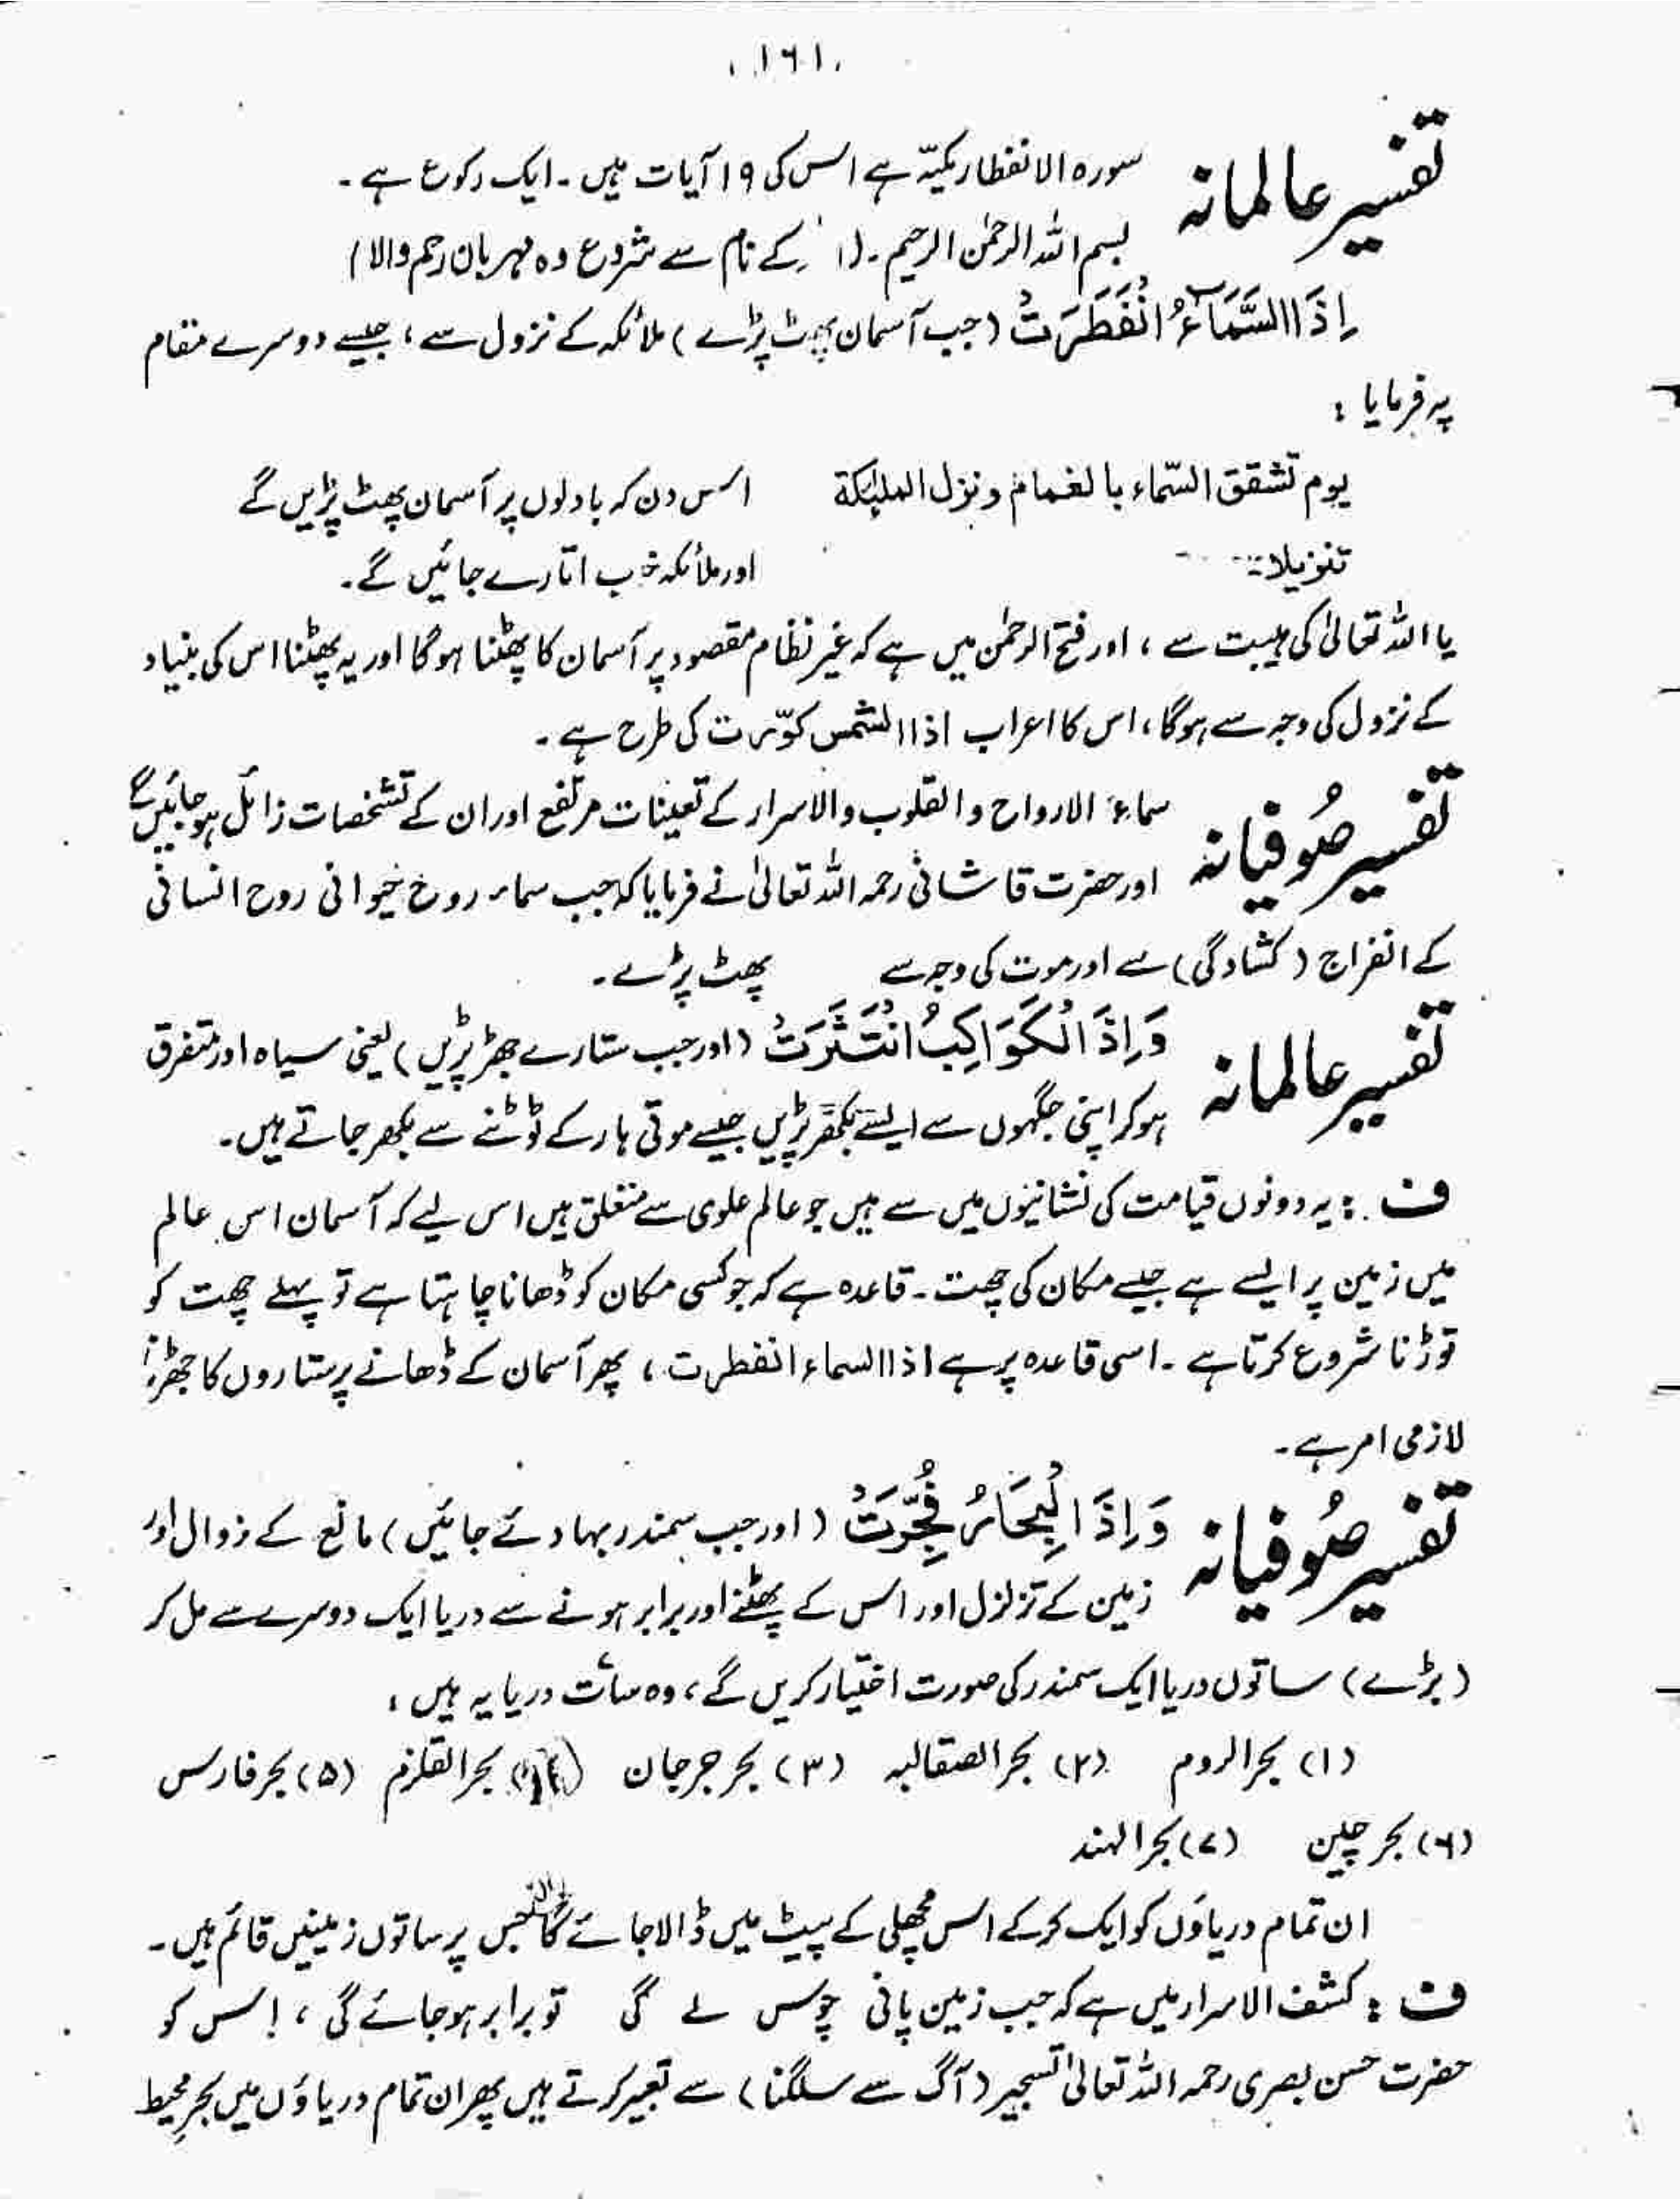 ۱۶۱
تفسیر عالمانہ
سورہ الانفطار مکیّہ ہے اس کی ۱۹ آیات ہیں ۔ ایک رکوع ہے ۔
بسم اللہ الرحمٰن الرحیم ۔ ( کے نام سے شروع وہ مہربان رحم والا )
اِذَا السَّمَآءُ انْفَطَرَتْ ( جب آسمان پھٹ پڑے ) ملائکہ کے نزول سے ، جیسے دوسرے مقام
پہ فرمایا :
یوم تشقق السّماء بالغمام ونزل الملٰئکة اس دن کہ بادلوں پر آسمان پھٹ پڑیں گے
تنزیلا اور ملائکہ خوب اتارے جائیں گے ۔
یا اللہ تعالیٰ کی ہیبت سے ، اور فتح الرحمٰن میں ہے کہ غیر نظام مقصود پر آسمان کا پھٹنا ہوگا اور یہ پھٹنا اس کی بنیاد
کے نزول کی وجہ سے ہوگا ، اس کا اعراب اذا الشمس کوّرت کی طرح ہے ۔
تفسیر صُوفیانہ
سماء الارواح والقلوب والاسرار کے تعینات مرتفع اور ان کے تشخصات زائل ہوجائیں گے
اور حضرت قاشانی رحمہ اللہ تعالیٰ نے فرمایا کہ جب سماء روح حیوانی روح انسانی
کے انفراج ( کشادگی ) سے اور موت کی وجہ سے پھٹ پڑے ۔
تفسیر عالمانہ
وَاِذَا الْكَوَاكِبُ انْتَثَرَتْ ( اور جب ستارے جھڑ پڑیں ) یعنی سیاہ اور متفرق
ہوکر اپنی جگہوں سے ایسے بکھر پڑیں جیسے موتی ہار کے ٹوٹنے سے بکھر جاتے ہیں ۔
ف : یہ دونوں قیامت کی نشانیوں میں سے ہیں جو عالم علوی سے متعلق ہیں اس لیے کہ آسمان اس عالم
میں زمین پر ایسے ہے جیسے مکان کی چھت ۔ قاعدہ ہے کہ جو کسی مکان کو ڈھانا چاہتا ہے تو پہلے چھت کو
توڑنا شروع کرتا ہے ۔ اسی قاعدہ پر ہے اذا السماء انفطرت ، پھر آسمان کے ڈھانے پر ستاروں کا جھڑنا
لازمی امر ہے ۔
تفسیر صُوفیانہ
وَاِذَا الْبِحَارُ فُجِّرَتْ ( اور جب سمندر بہا دئے جائیں ) مانع کے زوال اور
زمین کے تزلزل اور اس کے پھٹنے اور برابر ہونے سے دریا ایک دوسرے سے مل کر
( بڑے ) ساتوں دریا ایک سمندر کی صورت اختیار کریں گے ، وہ سات دریا یہ ہیں :
(۱) بحر الروم (۲) بحر الصقالبہ (۳) بحر جرجان (۴) بحر القلزم (۵) بحر فارس
(۶) بحر چین (۷) بحر الہند
ان تمام دریاؤں کو ایک کرکے اس مچھلی کے پیٹ میں ڈالا جائے گا جس پر ساتوں زمینیں قائم ہیں ۔
ف : کشف الاسرار میں ہے کہ جب زمین پانی چوس لے گی تو برابر ہوجائے گی ، اس کو
حضرت حسن بصری رحمہ اللہ تعالیٰ تسجیر ( آگ سے سلگنا ) سے تعبیر کرتے ہیں پھر ان تمام دریاؤں میں بحرِ محیط